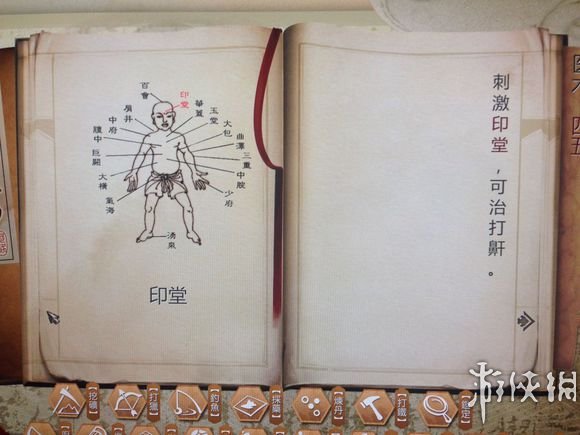 百會
印堂
華蓋
玉堂
大包
曲澤
三重
中脘
少府
肩井
中府
膻中
巨闕
大橫
氣海
湧泉
印堂
刺激印堂，可治打鼾。
【挖礦】
【打獵】
【釣魚】
【採藥】
【煉丹】
【打鐵】
【鑑定】
游侠网